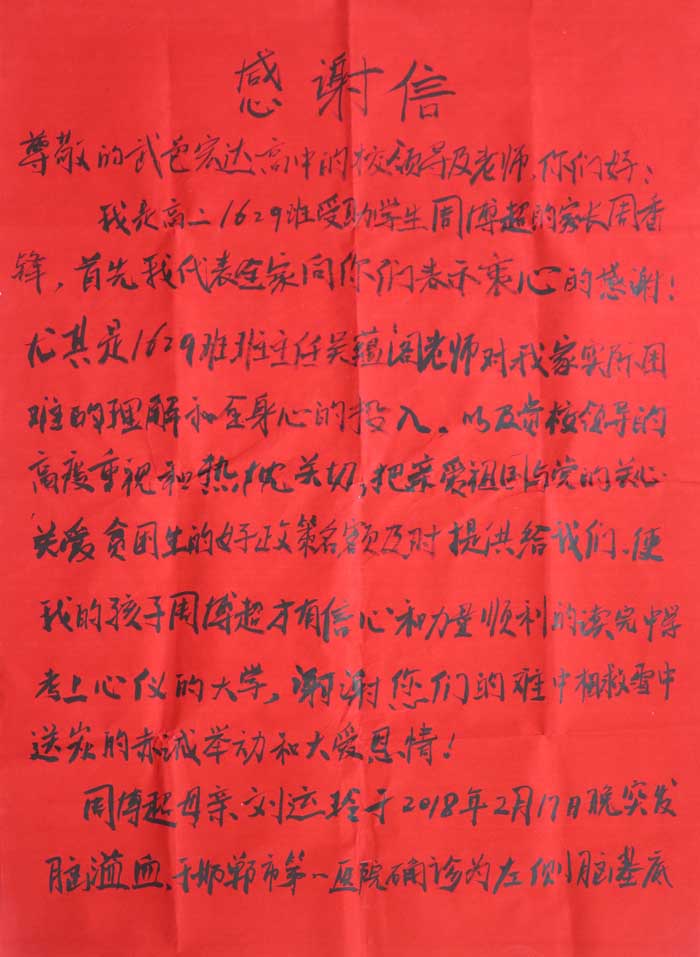 感谢信
尊敬的武邑宏达高中的校领导及老师，你们好：
我是高二1629班受助学生周博超的家长周香
锋，首先我代表全家向你们表示衷心的感谢！
尤其是1629班班主任吴蕴阁老师对我家实际困
难的理解和全身心的投入、以及贵校领导的
高度重视和热忱关切，把亲爱祖国与党的关心
关爱贫困生的好政策名额及时提供给我们、使
我的孩子周博超才有信心和力量顺利的读完中学
考上心仪的大学，谢谢您们的难中相救雪中
送炭的赤诚举动和大爱恩情！
周博超母亲刘运玲于2018年2月17日晚突发
脑溢血，于邯郸市第一医院确诊为左侧脑基底